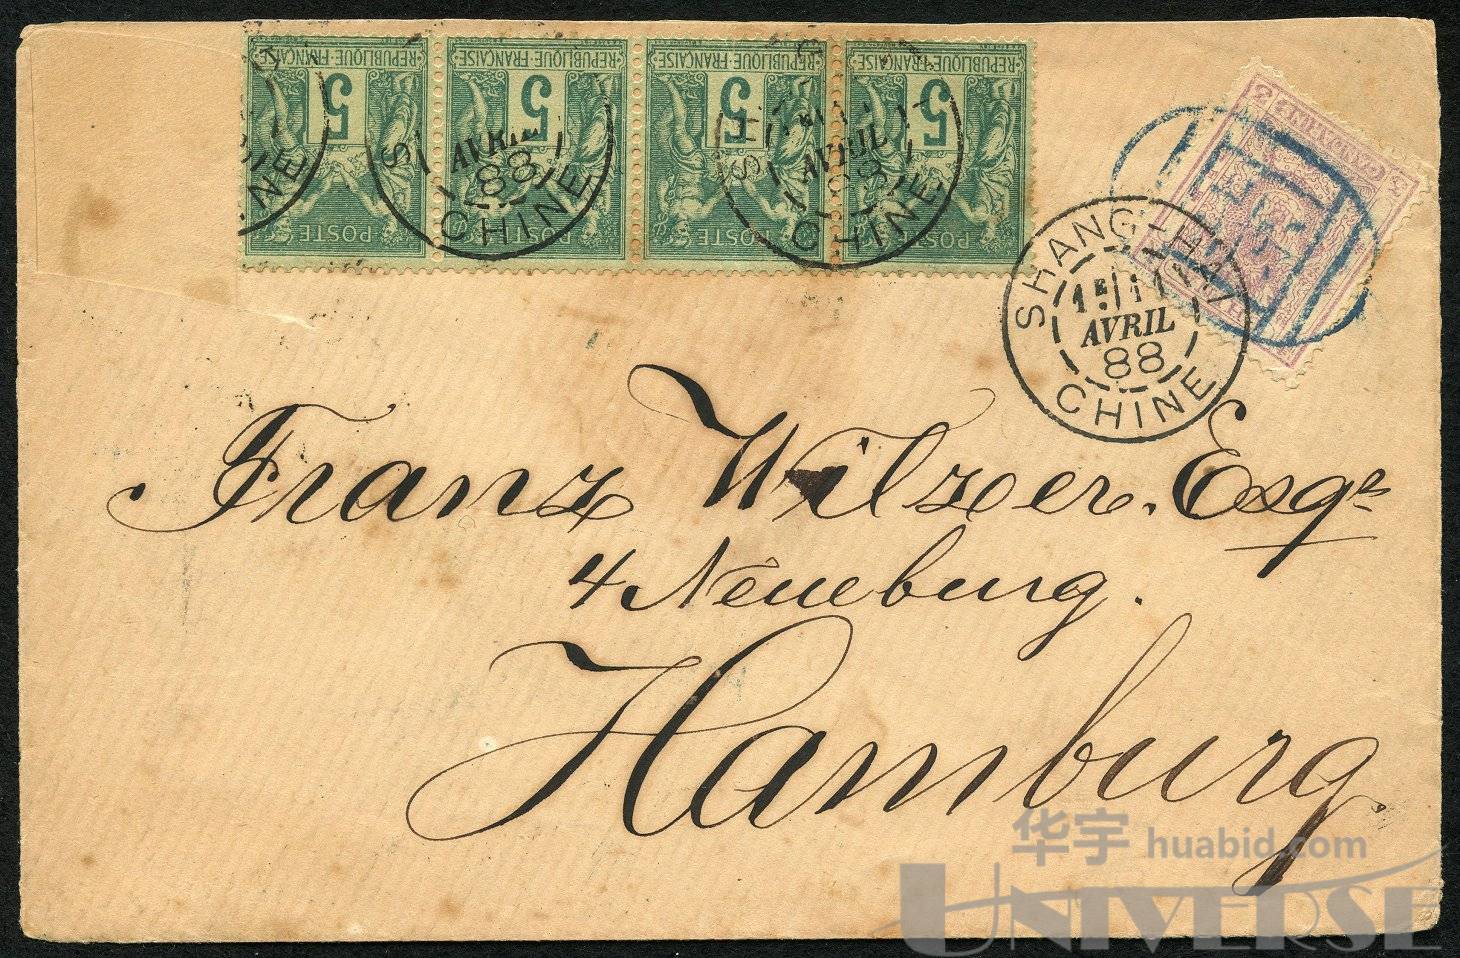 REPUBLIQUE · FRANÇAISE REPUBLIQUE · FRANÇAISE REPUBLIQUE · FRANÇAISE REPUBLIQUE · FRANÇAISE
5 5 5 5
POSTE POSTE POSTE POSTE
CHINE
AVRIL
88
CHINE
SH
AVRIL
88
CHINE
3 CANDARINS 3
SHANG-HAI
1E 11
AVRIL
88
CHINE
Franz Wilzer. Esqr
4 Neueburg.
Hamburg.
华宇 huabid.com
UNIVERSE